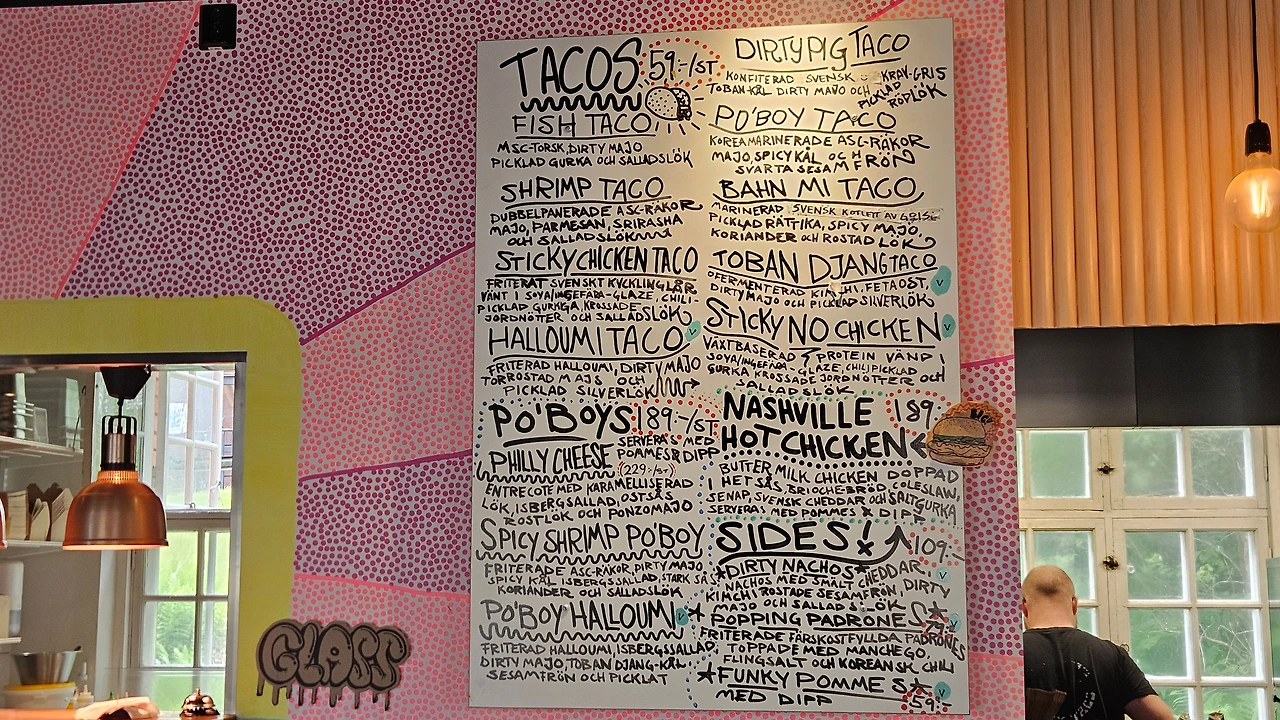 TACOS 59:-/ST
FISH TACO
MSC-TORSK, DIRTY MAJO
PICKLAD GURKA OCH SALLADSLÖK
SHRIMP TACO
DUBBELPANERADE ASC-RÄKOR
MAJO, PARMESAN, SRIRASHA
OCH SALLADSLÖK
STICKY CHICKEN TACO
FRITERAT SVENSKT KYCKLINGLÅR
VÄNT I SOYA/INGEFÄRA-GLAZE, CHILI-
PICKLAD GURKGA KROSSADE
JORDNÖTTER OCH SALLADSLÖK
HALLOUMI TACO V
FRITERAD HALLOUMI, DIRTY MAJO
TORROSTAD MAJS OCH
PICKLAD SILVERLÖK
PO'BOYS 189:-/ST
SERVERAS MED
POMMES & DIPP
PHILLY CHEESE (229:-/ST)
ENTRECOTE MED KARAMELLISERAD
LÖK, ISBERGSALLAD, OSTSÅS
ROSTLÖK OCH PONZUMAJO
SPICY SHRIMP PO'BOY
FRITERADE ASC-RÄKOR, DIRTY MAJO,
SPICY KÅL ISBERGSSALLAD, STARK SÅS
KORIANDER OCH SALLADSLÖK
PO'BOY HALLOUMI V
FRITERAD HALLOUMI, ISBERGSSALLAD,
DIRTY MAJO, TOBAN DJANG-KÅL,
SESAMFRÖN OCH PICKLAT
DIRTY PIG TACO
KONFITERAD SVENSK KRAV-GRIS
TOBAN-KÅL DIRTY MAJO OCH PICKLAD
RÖDLÖK
PO'BOY TACO
KOREAMARINERADE ASC-RÄKOR
MAJO, SPICY KÅL OCH
SVARTA SESAMFRÖN
BAHN MI TACO
MARINERAD SVENSK KOTLETT AV GRIS
PICKLAD RÄTTIKA, SPICY MAJO,
KORIANDER OCH ROSTAD LÖK
TOBAN DJANG TACO V
FERMENTERAD KIMCHI, FETAOST,
DIRTY MAJO OCH PICKLAD SILVERLÖK
STICKY NO CHICKEN V
VÄXTBASERAD PROTEIN VÄND I
SOYA/INGEFÄRA-GLAZE, CHILIPICKLAD
GURKA KROSSADE JORDNÖTTER OCH
SALLADSLÖK
NASHVILLE 189:-
HOT CHICKEN
BUTTER MILK CHICKEN DOPPAD
I HET SÅS, BRIOCHE-BRÖD COLESLAW,
SENAP, SVENSK CHEDDAR OCH SALTGURKA
SERVERAS MED POMMES & DIPP
SIDES! 109:-
*DIRTY NACHOS* V
NACHOS MED SMÄLT CHEDDAR,
KIMCHI ROSTADE SESAMFRÖN, DIRTY
MAJO OCH SALLADSLÖK
*POPPING PADRONES* V
FRITERADE FÄRSKOSTFYLLDA PADRONES
TOPPADE MED MANCHEGO,
FLINGSALT OCH KOREANSK CHILI
*FUNKY POMMES* V
MED DIPP 59:-
GLASS